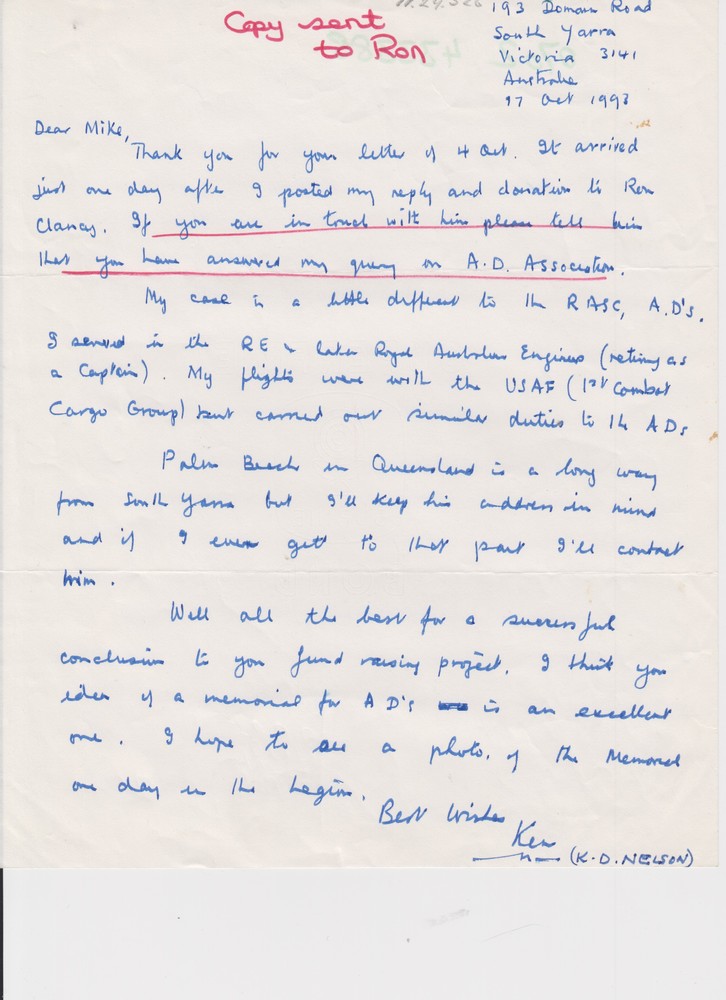 Copy sent
to Ron
193 Domain Road
South Yarra
Victoria 3141
Australia
17 Oct 1993
Dear Mike,
Thank you for your letter of 4 Oct. It arrived
just one day after I posted my reply and donation to Ron
Clancy. If you are in touch with him please tell him
that you have answered my query on A.D. Association.
My case is a little different to the RASC, A.D's.
I served in the RE & later Royal Australian Engineers (retiring as
a Captain). My flights were with the USAF (1st Combat
Cargo Group) but carried out similar duties to the ADs
Palm Beach in Queensland is a long way
from South Yarra but I'll keep his address in mind
and if I ever get to that part I'll contact
him.
Well all the best for a successful
conclusion to you fund raising project. I think you
idea of a memorial for AD's is an excellent
one. I hope to see a photo. of the Memorial
one day in the Legion.
Best Wishes
Ken
(K.D. NELSON)